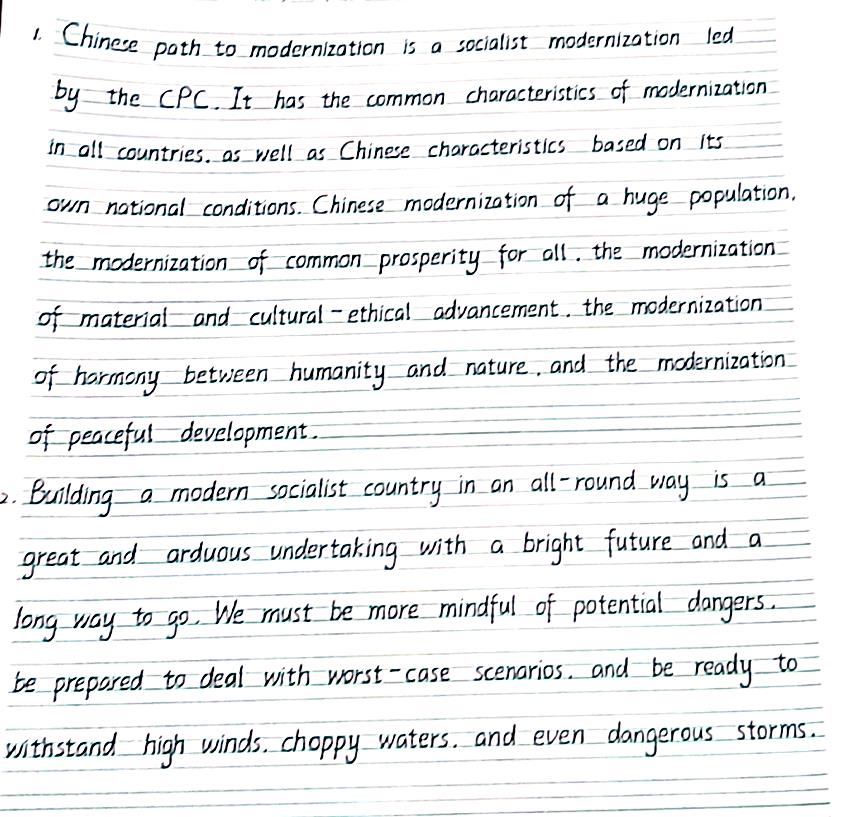 1. Chinese path to modernization is a socialist modernization led
by the CPC. It has the common characteristics of modernization
in all countries, as well as Chinese characteristics based on its
own national conditions. Chinese modernization of a huge population,
the modernization of common prosperity for all, the modernization
of material and cultural-ethical advancement, the modernization
of harmony between humanity and nature, and the modernization
of peaceful development.
2. Building a modern socialist country in an all-round way is a
great and arduous undertaking with a bright future and a
long way to go. We must be more mindful of potential dangers,
be prepared to deal with worst-case scenarios, and be ready to
withstand high winds, choppy waters, and even dangerous storms.